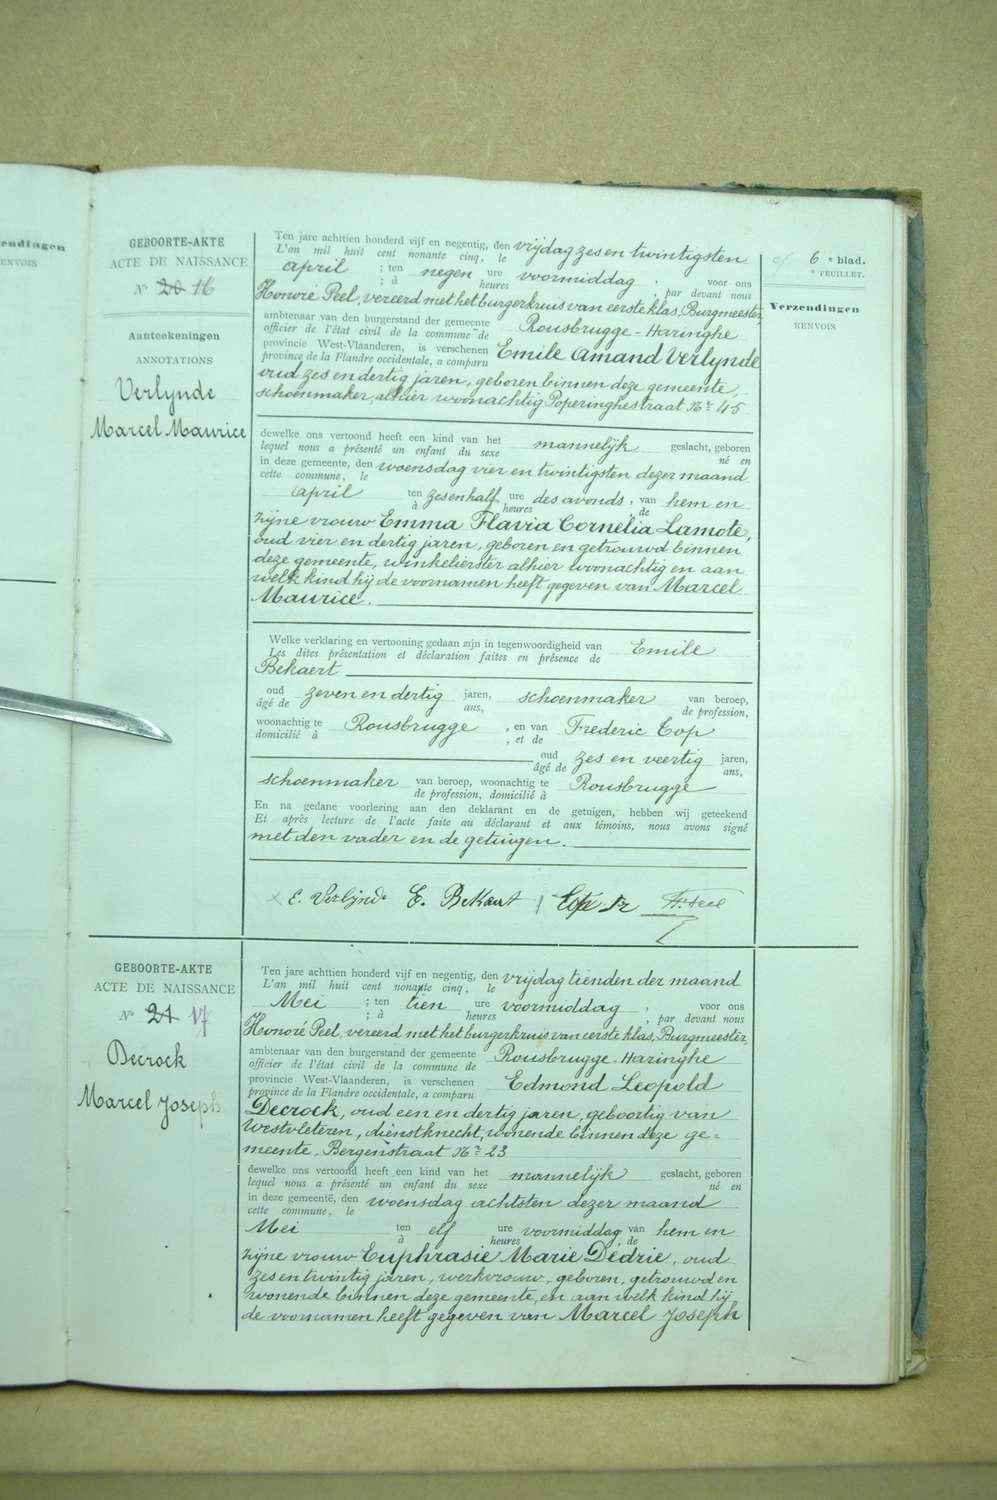 endingen
ENVOIS
6 e blad.
e FEUILLET.
Verzendingen
RENVOIS
GEBOORTE-AKTE
ACTE DE NAISSANCE
No 20 16
Aanteekeningen
ANNOTATIONS
Verlynde
Marcel Maurice
Ten jare achttien honderd vijf en negentig, den vrijdag zes en twintigsten
L'an mil huit cent nonante cinq, le
april ; ten negen ure voormiddag , voor ons
; à heures , par devant nous
Honoré Peel, vereerd met het burgerkruis van eerste klas, Burgmeester,
ambtenaar van den burgerstand der gemeente Rousbrugge-Haringhe
officier de l'état civil de la commune de
provincie West-Vlaanderen, is verschenen Emile Amand Verlynde
province de la Flandre occidentale, a comparu
oud zes en dertig jaren, geboren binnen deze gemeente,
schoenmaker, alhier woonachtig Poperinghestraat No 45
dewelke ons vertoond heeft een kind van het mannelijk geslacht, geboren
lequel nous a présenté un enfant du sexe né en
in deze gemeente, den woensdag vier en twintigsten dezer maand
cette commune, le
april ten zes en half ure des avonds, van hem en
à heures de
zijne vrouw Emma Flavia Cornelia Lamote,
oud vier en dertig jaren, geboren en getrouwd binnen
deze gemeente, winkelierster alhier woonachtig en aan
welk kind hij de voornamen heeft gegeven van Marcel
Maurice.
Welke verklaring en vertooning gedaan zijn in tegenwoordigheid van Emile
Les dites présentation et déclaration faites en présence de
Bekaert
oud zeven en dertig jaren, schoenmaker van beroep,
âgé de ans, de profession,
woonachtig te Rousbrugge , en van Frederic Cop
domicilié à , et de
oud zes en veertig jaren,
âgé de ans,
schoenmaker van beroep, woonachtig te Rousbrugge
de profession, domicilié à
En na gedane voorlezing aan den deklarant en de getuigen, hebben wij geteekend
Et après lecture de l'acte faite au déclarant et aux témoins, nous avons signé
met den vader en de getuigen.
E. Verlynde E. Bekaert Cop Fr H. Peel
GEBOORTE-AKTE
ACTE DE NAISSANCE
No 21 17
Decrock
Marcel Joseph
Ten jare achttien honderd vijf en negentig, den vrijdag tienden der maand
L'an mil huit cent nonante cinq, le
Mei ; ten tien ure voormiddag , voor ons
; à heures , par devant nous
Honoré Peel, vereerd met het burgerkruis van eerste klas, Burgmeester,
ambtenaar van den burgerstand der gemeente Rousbrugge-Haringhe
officier de l'état civil de la commune de
provincie West-Vlaanderen, is verschenen Edmond Leopold
province de la Flandre occidentale, a comparu
Decrock, oud een en dertig jaren, geboortig van
Westvleteren, dienstknecht, wonende binnen deze ge=
meente, Bergenstraat No 23
dewelke ons vertoond heeft een kind van het mannelijk geslacht, geboren
lequel nous a présenté un enfant du sexe né en
in deze gemeente, den woensdag achtsten dezer maand
cette commune, le
Mei ten elf ure voormiddag van hem en
à heures de
zijne vrouw Euphrasie Marie Dedrie, oud
zes en twintig jaren, werkvrouw, geboren, getrouwd en
wonende binnen deze gemeente, en aan welk kind hij
de voornamen heeft gegeven van Marcel Joseph